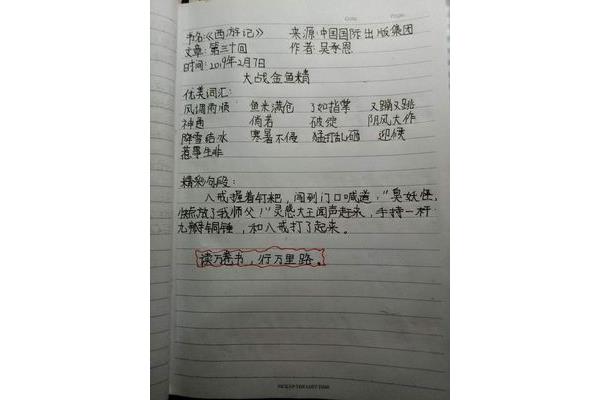 Date Page
书名:《西游记》 来源:中国国际出版集团
文章:第三十回 作者:吴承恩
时间:2019年2月7日
大战金鱼精
优美词汇:
风调雨顺 鱼米满仓 了如指掌 又蹦又跳
神通 倘若 破绽 阴风大作
降雪结冰 寒暑不侵 猛打乱砸 迎候
惹事生非
精彩句段:
八戒握着钉耙,闯到门口喊道:"臭妖怪,
快点放了我师父!"灵感大王闻声赶来,手持一杆
九瓣铜锤,和八戒打了起来。
读万卷书,行万里路。
PICK UP THE LOST TIME